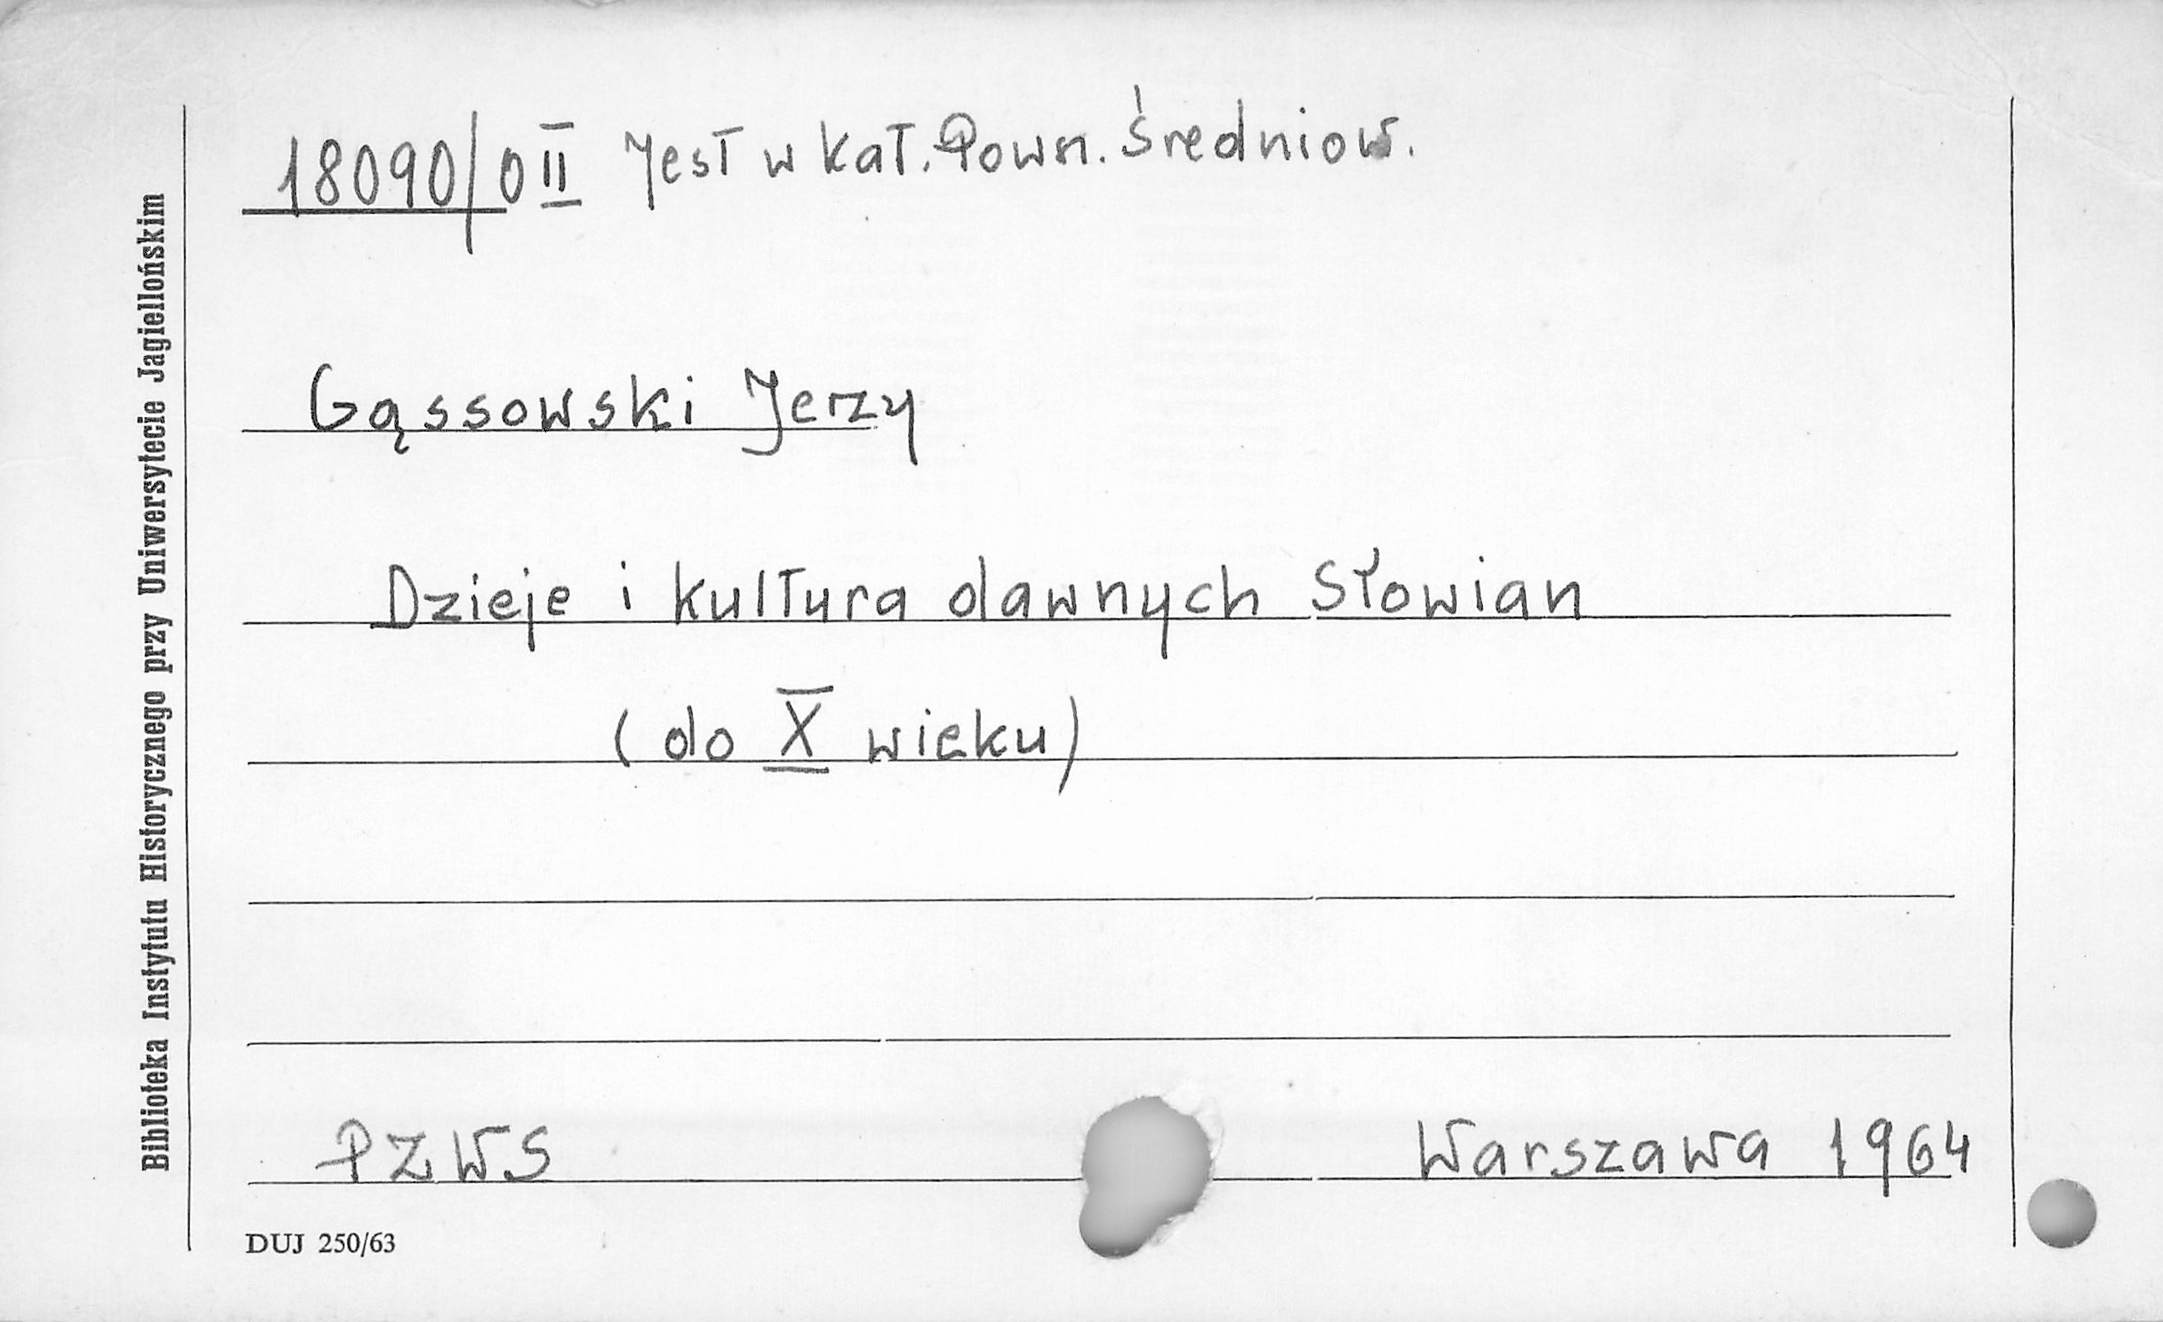 18090/0 II Jest w kat. Pown. Średniow.
Gąssowski Jerzy
Dzieje i kultura dawnych Słowian
(do X wieku)
PZWS Warszawa 1964
DUJ 250/63
Biblioteka Instytutu Historycznego przy Uniwersytecie Jagiellońskim